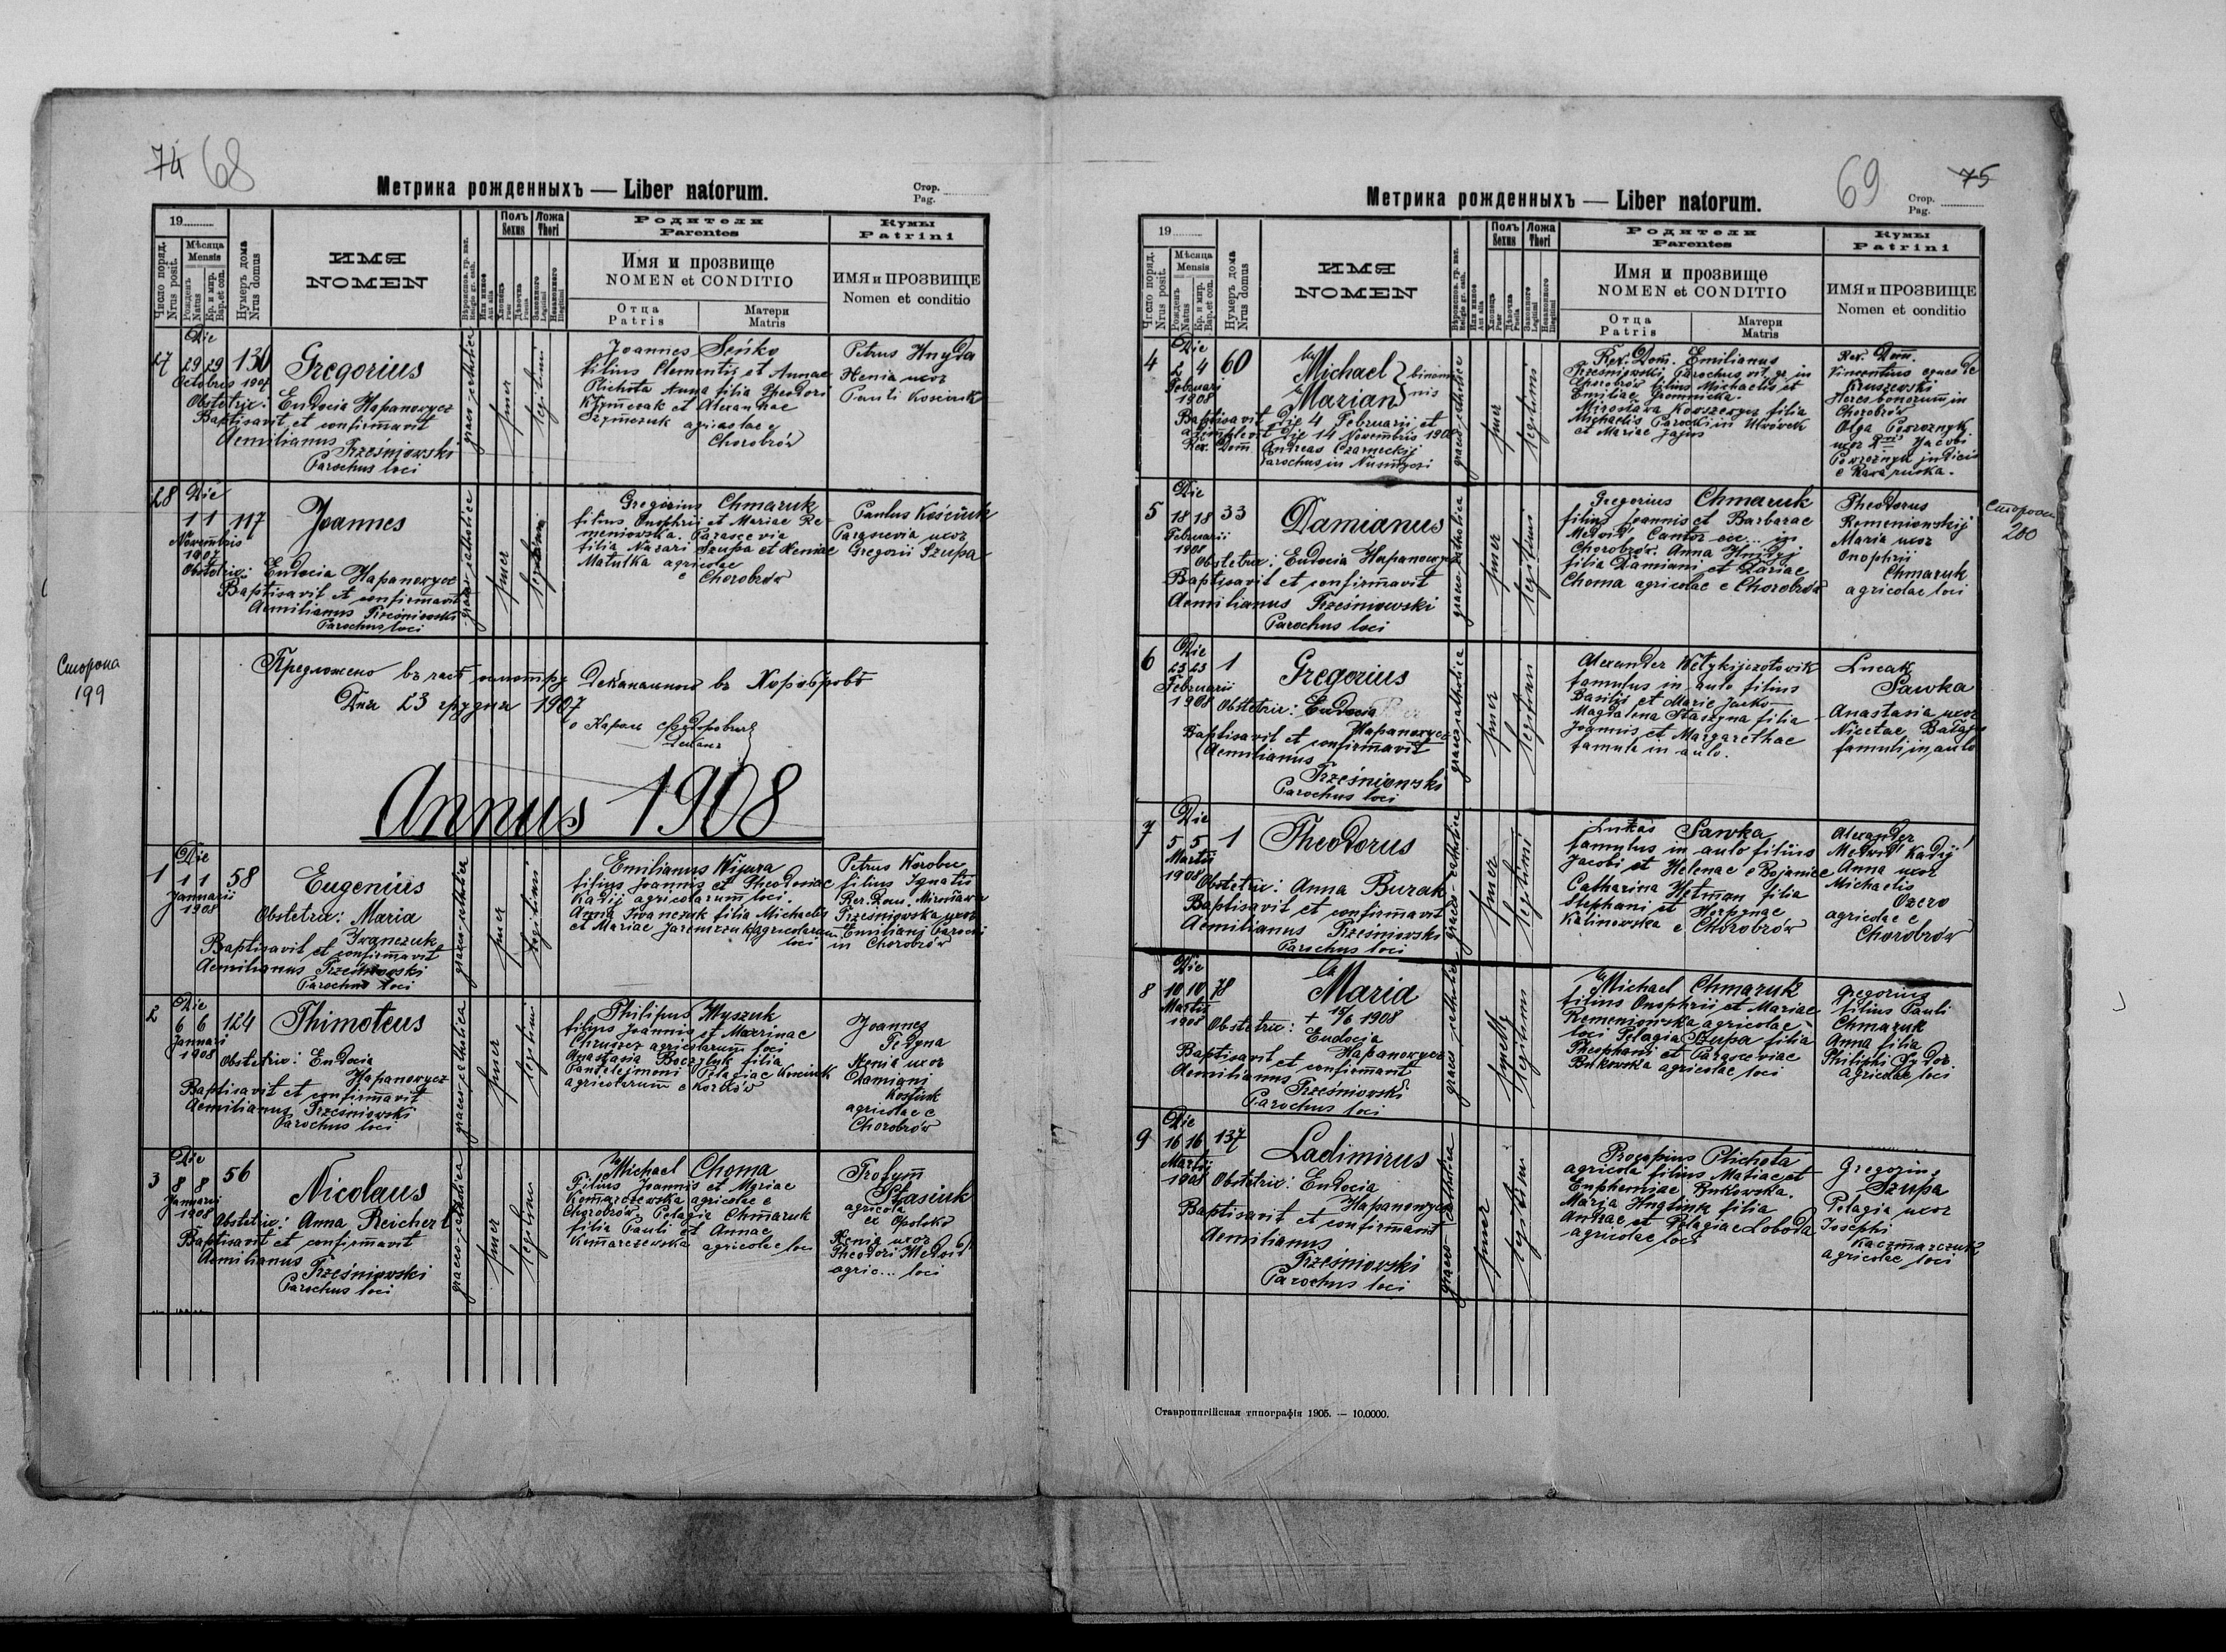 74 68
Метрика рожденныхъ — Liber natorum.
Стор.
Pag.
19
Число поряд.
Nrus posit.
Мѣсяца
Mensis
Рожденъ
Natus
Кр. и мир.
Bap. et con.
Нумеръ дома
Nrus domus
ИМЯ
NOMEN
Полъ
Sexus
Ложа
Thori
Родители
Parentes
Имя и прозвище
NOMEN et CONDITIO
Отца
Patris
Матери
Matris
Кумы
Patrini
ИМЯ и ПРОЗВИЩЕ
Nomen et conditio
27
Die
29 29
Octobris 1907
130
Gregorius
Obstetrix: Eudocia Hapanowycz
Baptisavit et confirmavit
Aemilianus Trześniowski
Parochus loci
graeco-catholica
puer
legitimi
Joannes Seńko
filius Clementij et Annae
Plichota Anna filia Theodori
agricolae e
Chorobrów
Petrus Hnyda
Xenia uxor
Pauli Kościuk
28
Die
1 1
Novembris
1907
117
Joannes
Obstetrix: Eudocia Hapanowycz
Baptisavit et confirmavit
Aemilianus Trześniowski
Parochus loci
graeco-catholica
puer
legitimi
Gregorius Chmaruk
filius Onophrii et Mariae Re-
meniowska. Parascevia
filia Nazari Szupa et Xeniae
Matułka agricolae
e Chorobrów
Paulus Kościuk
Parascevia uxor
Gregorii Szupa
Сторона
199
Предложено въ часѣ осмотру Деканального въ Хоробровѣ
Дня 23 грудня 1907
Annus 1908
1
Die
1 1
Januarii
1908
58
Eugenius
Obstetrix: Maria
Iwanczuk
Baptisavit et confirmavit
Aemilianus Trześniowski
Parochus loci
graeco-catholica
puer
legitimi
Emilianus Wijura
filius Joannis et Theodosiae
Kadij agricolarum loci.
Anna Iwanczuk filia Michaelis
et Mariae Jaremczuk agricolarum
loci
Petrus Worobec
filius Ignatii
Rev. Dom. Mirosława
Trześniowska uxor
Emiliani Parochi
in Chorobrów
2
Die
6 6
Januari
1908
124
Thimoteus
Obstetrix: Eudocia
Hapanowycz
Baptisavit et confirmavit
Aemilianus Trześniowski
Parochus loci
graeco-catholica
puer
legitimi
Philipus Wyszuk
filius Joannis et Marinae
Chruszcz agricolarum loci
Anastasia Baczyłyk filia
Pantelejmoni Pelagiae Kościuk
agricolarum e
Joannes
Pedyna
Xenia uxor
Damiani
Kostiuk
agricolae e
Chorobrów
3
Die
8 8
Januarii
1908
56
Nicolaus
Obstetrix: Anna Reichert
Baptisavit et confirmavit
Aemilianus
Trześniowski
Parochus loci
graeco-catholica
puer
legitimi
Michael Choma
Filius Joannis et Mariae
Komarczewska agricolae e
Chorobrów. Pelagia Chmaruk
filia Pauli et Annae
Komarczewska agricolae loci
Trofym
Stasiuk
agricola
ex Opolsko
Xenia uxor
Theodori Medwid
agric... loci
69 75
Метрика рожденныхъ — Liber natorum.
Стор.
Pag.
19
Число поряд.
Nrus posit.
Мѣсяца
Mensis
Рожденъ
Natus
Кр. и мир.
Bap. et con.
Нумеръ дома
Nrus domus
ИМЯ
NOMEN
Полъ
Sexus
Ложа
Thori
Родители
Parentes
Имя и прозвище
NOMEN et CONDITIO
Отца
Patris
Матери
Matris
Кумы
Patrini
ИМЯ и ПРОЗВИЩЕ
Nomen et conditio
4
Die
2 4
Februari
1908
60
Michael } binomi-
Marian } nis
Baptisavit Die 4 Februarii et
Die 14 Novembris 1908
Rev. Dom Andreas Czarneckij
Parochus in
graeco-catholica
puer
legitimi
Rev. Dom. Emilianus
Trześniowski Parochus in
Chorobrów filius Michaelis et
Emiliae Gromnicka.
Mirosława filia
Michaelis Parochi in Uhnówek
et Mariae Jajus
Rev. Dom.
Vincentius eques de
Kruszewski
Heres bonorum in
Chorobrów
Olga Powroznyk
uxor Jacobi
Powroznyk judicis
e Rawa ruska.
5
Die
18 18
Februarii
1908
33
Damianus
Obstetrix: Eudocia Hapanowycz
Baptisavit et confirmavit
Aemilianus Trześniowski
Parochus loci
graeco-catholica
puer
legitimi
Gregorius Chmaruk
filius Joannis et Barbarae
Medwid Cantor in
Chorobrów. Anna Hnidyj
filia Damiani et Dariae
Choma agricolae e Chorobrów
Theodorus
Remeniowskij
Maria uxor
Onophrii
Chmaruk
agricolae loci
Сторона
200
6
Die
23 23
Februarii
1908
1
Gregorius
Obstetrix: Eudocia
Hapanowycz
Baptisavit et confirmavit
Aemilianus
Trześniowski
Parochus loci
graeco-catholica
puer
legitimi
Alexander Wełykijczołowik
famulus in aulo filius
Basilii et Marie Jarko
Magdalena Staszyna filia
Joannis et Margarethae
famula in aulo.
Lucak
Sawka
Anastasia uxor
Nicetae
famuli in aulo
7
Die
5 5
Martii
1908
1
Theodorus
Obstetrix: Anna Burak
Baptisavit et confirmavit
Aemilianus Trześniowski
Parochus loci
graeco-catholica
puer
legitimi
Lukas Sawka
famulus in aulo filius
Jacobi et Helenae e Bojanice
Catharina Hetman filia
Stephani et Horpynae
Kalinowska e Chorobrów
Alexander
Medwid Kadij
Anna uxor
Michaelis
Ozero
agricolae e
Chorobrów
8
Die
10 10
Martii
1908
78
Maria
+ 15/6 1908
Obstetrix:
Eudocia
Hapanowycz
Baptisavit et confirmavit
Aemilianus
Trześniowski
Parochus loci
graeco-catholica
puella
legitimi
Michael Chmaruk
filius Onophrii et Mariae
Remeniowska agricolae
loci Pelagia Szupa filia
Theophani et Parasceviae
Bukowska agricolae loci
Gregorius
filius Pauli
Chmaruk
Anna filia
Philiphi Sydor
agricolae loci
9
Die
16 16
Martii
1908
137
Ladimirus
Obstetrix: Eudocia
Hapanowycz
Baptisavit et confirmavit
Aemilianus
Trześniowski
Parochus loci
graeco-catholica
puer
legitimi
Procopius Plichota
agricola filius Matiae et
Euphemiae Bukowska.
Maria filia
Andrae et Pelagiae Łoboda
agricolae loci
Gregorius
Szupa
Pelagia uxor
Josephi
Kaczmarczuk
agricolae loci
Ставропигійская типографія 1905. — 10.0000.